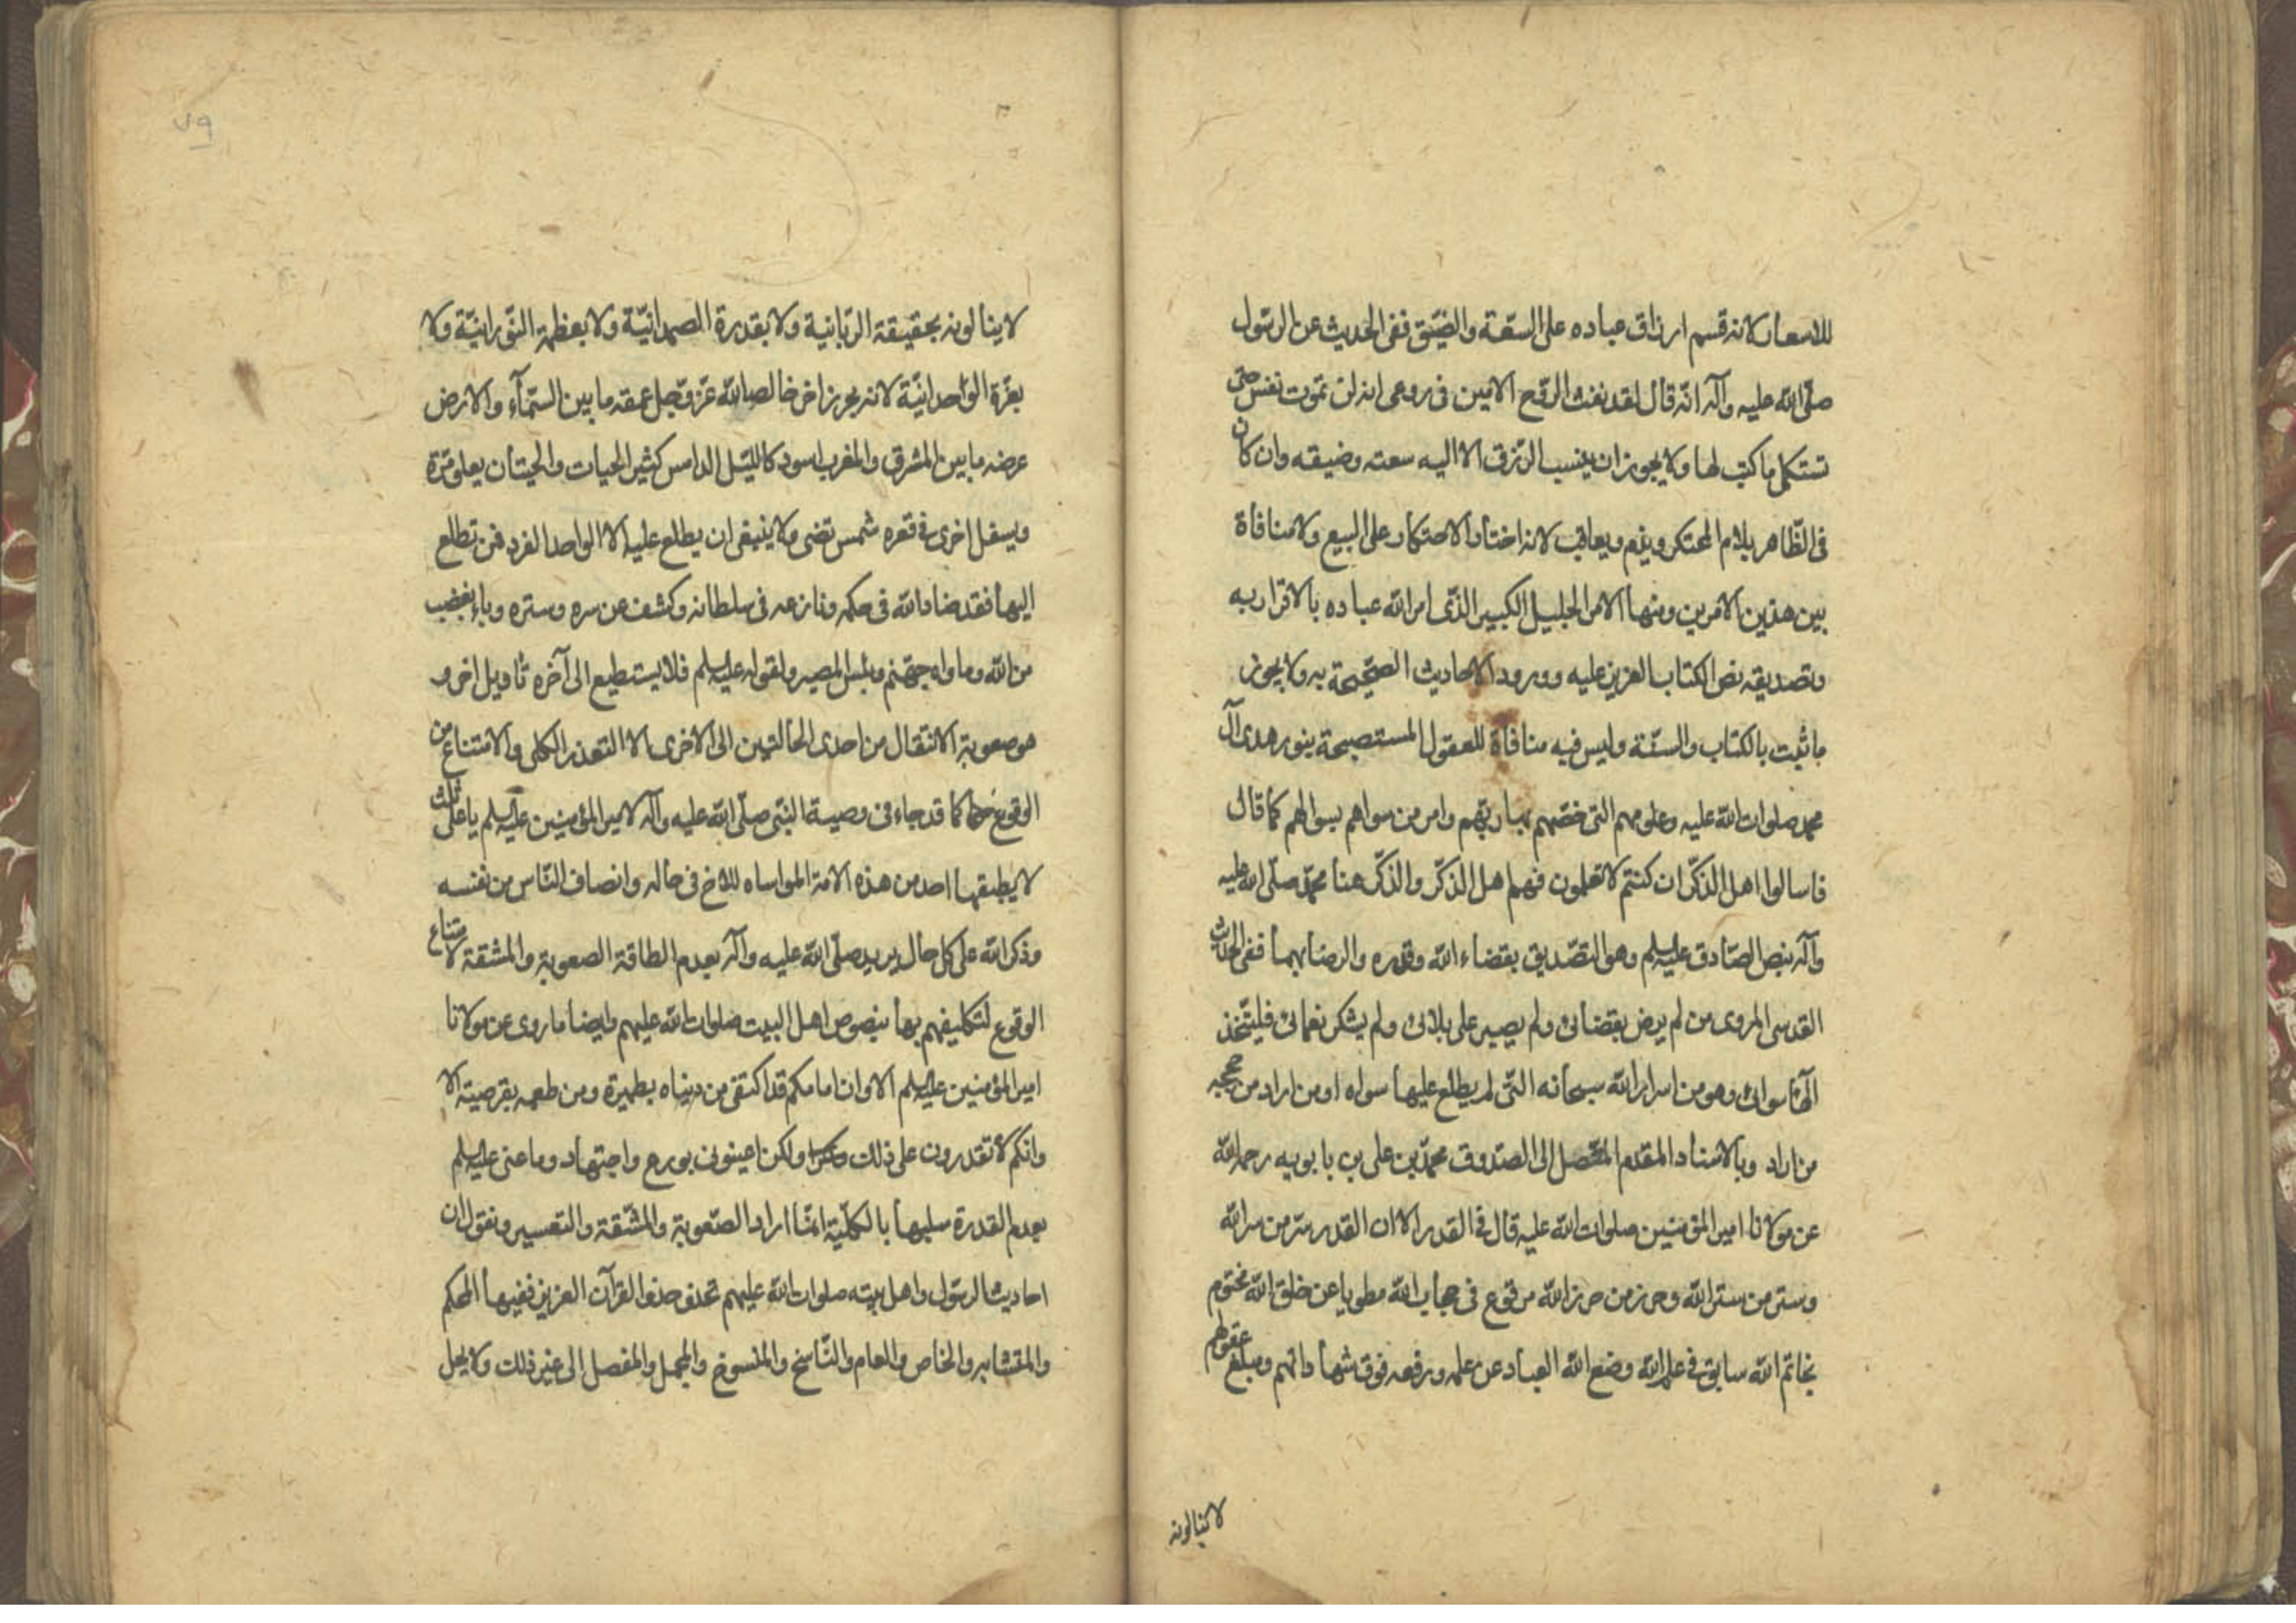 للاسعار لانه قسم ارزاق عباده على السعة والضيق ففى الحديث عن الرسول
صلّى الله عليه وآله انّه قال لقد نفث الرّوح الامين فى روعى انه لن تموت نفس حتى
تستكمل ما كتب لها ولا يجوز ان ينسب الرّزق الا اليه سعته وضيقه وان كان
فى الظّاهر يلام المحتكر ويذم ويعاقب لانه اختار الاحتكار على البيع ولا منافاة
بين هذين الامرين ومنها الامر الجليل الكبير الذّى امر الله عباده بالاقرار به
وتصديقه نص الكتاب العزيز عليه وورود الاحاديث الصّحيحة به ولا يجوز
ما ثبت بالكتاب والسنّة وليس فيه منافاة للعقول المستصبحة بنور هدى آل
محمد صلوات الله عليه وعلومهم التى خصّهم بها ربّهم وامر من سواهم بسوالهم كما قال
فاسالوا اهل الذكّر ان كنتم لا تعلمون فهم اهل الذكّر والذكّر هنا محمّد صلّى الله عليه
وآله بنص الصّادق عليه السلم وهو التصّديق بقضاء الله وقدره والرضا بهما ففى الحديث
القدسى المروى من لم يرض بقضائى ولم يصبر على بلائى ولم يشكر نعمائى فليتّخذ
الٓهًا سوائى وهو من اسرار الله سبحانه التّى لم يطلع عليها سواه او من اراد من حججه
من اراد وبالاسناد المقدم المتّصل الى الصّدوق محمّد بن على بن بابويه رحمه الله
عن مولانا امير المؤمنين صلوات الله عليه قال فى القدر الا ان القدر سرّ من سر الله
وستر من ستر الله وحرز من حرز الله مرفوع فى حجاب الله مطويا عن خلق الله مختوم
بخاتم الله سابق فى علم الله وضع الله العباد عن علمه ورفعه فوق شهاداتهم ومبلغ عقولهم
لا ينالونه
لا ينالونه بحقيقة الربّانية ولا بقدرة الصمدانيّة ولا بعظمة النّورانيّة ولا
بعزّة الوّاحدانيّة لانه بحر زاخر خالصا لله عزّ وجّل عمقه ما بين السّمآء والارض
عرضه ما بين المشرق والمغرب اسود كاللّيل الدامس كثير الحيات والحيتان يعلو مرّة
ويسفل اخرى فى قعره شمس تضى ولا ينبغى ان يطلع عليه الا الواحد الفرد فمن تطلع
اليها فقد ضاد الله فى حكمه ونازعه فى سلطانه وكشف عن سره وستره وباء بغضب
من الله وماواه جهّنم وبئس المصير ولقوله عليه السلم فلا يستطيع الى آخره تاويل اخر و
هو صعوبة الانتقال من احدى الحالتين الى الاخرى لا التعذر الكلى والامتناع من
الوقوع كما قد جاء فى وصية النّبى صلّى الله عليه وآله لامير المؤمنين عليه السلم يا على ثلث
لا يطيقها احد من هذه الامة المواساه للاخ فى ماله وانصاف النّاس من نفسه
وذكر الله على كل حال يريد صلّى الله عليه وآله بعدم الطاقة الصعوبة والمشقة لا متناع
الوقوع لتكليفهم بها بنصوص اهل البيت صلوات الله عليهم وايضا ما روى عن مولانا
امير المؤمنين عليه السلم الا وان امامكم قد اكتفى من دنياه بطمرية ومن طعمه بقرصية الا
وانكم لا تقدرون على ذلك ولكن اعينونى بورع واجتهاد وما عنى عليه السلم
بعدم القدرة سلبها بالكلّية انمّا اراد الصّعوبة والمشّقة والتعسير ونقول ان
احاديث الرسّول واهل بيته صلوات الله عليهم تحذو حذو القرآن العزيز ففيها المحكم
والمتشابه والخاص والعام والنّاسخ والمنسوخ والمجمل والمفصل الى غير ذلك ولا يحل